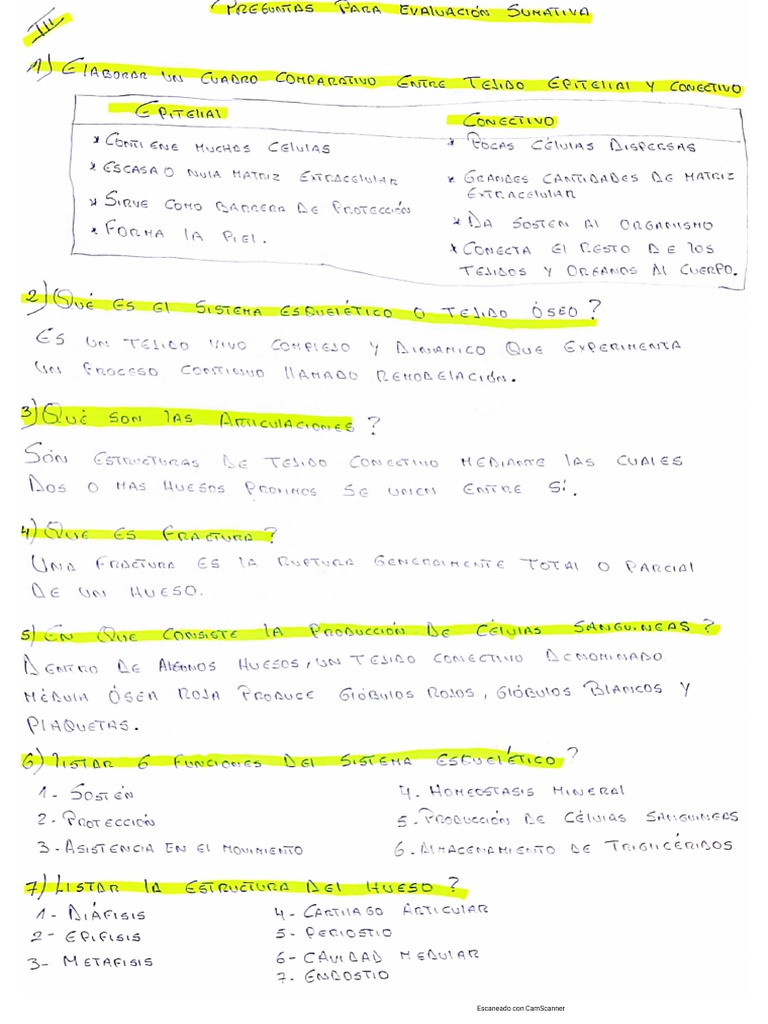 III
PREGUNTAS PARA EVALUACIÓN SUMATIVA
1) ELABORAR UN CUADRO COMPARATIVO ENTRE TEJIDO EPITELIAL Y CONECTIVO
EPITELIAL
* CONTIENE MUCHAS CÉLULAS
* ESCASA O NULA MATRIZ EXTRACELULAR
* SIRVE COMO BARRERA DE PROTECCIÓN
* FORMA LA PIEL.
CONECTIVO
* POCAS CÉLULAS DISPERSAS
* GRANDES CANTIDADES DE MATRIZ
EXTRACELULAR
* DA SOSTEN AL ORGANISMO
* CONECTA EL RESTO DE LOS
TEJIDOS Y ORGANOS AL CUERPO.
2) QUÉ ES EL SISTEMA ESQUELÉTICO O TEJIDO ÓSEO?
ES UN TEJIDO VIVO COMPLEJO Y DINAMICO QUE EXPERIMENTA
UN PROCESO CONTINUO LLAMADO REMODELACIÓN.
3) QUÉ SON LAS ARTICULACIONES?
SÓN ESTRUCTURAS DE TEJIDO CONECTIVO MEDIANTE LAS CUALES
DOS O MAS HUESOS PROXIMOS SE UNEN ENTRE SÍ.
4) QUE ES FRACTURA?
UNA FRACTURA ES LA RUPTURA GENERALMENTE TOTAL O PARCIAL
DE UN HUESO.
5) EN QUE CONSISTE LA PRODUCCIÓN DE CÉLULAS SANGUINEAS?
DENTRO DE ALGUNOS HUESOS, UN TEJIDO CONECTIVO DENOMINADO
MÉDULA ÓSEA ROJA PRODUCE GLÓBULOS ROJOS, GLÓBULOS BLANCOS Y
PLAQUETAS.
6) LISTAR 6 FUNCIONES DEL SISTEMA ESQUELÉTICO?
1- SOSTÉN
2- PROTECCIÓN
3- ASISTENCIA EN EL MOVIMIENTO
4. HOMEOSTASIS MINERAL
5. PRODUCCIÓN DE CÉLULAS SANGUINEAS
6. ALMACENAMIENTO DE TRIGLICÉRIDOS
7) LISTAR LA ESTRUCTURA DEL HUESO?
1- DIÁFISIS
2- EPIFISIS
3- METAFISIS
4- CARTILAGO ARTICULAR
5- PERIOSTIO
6- CAVIDAD MEDULAR
7. ENDOSTIO
Escaneado con CamScanner